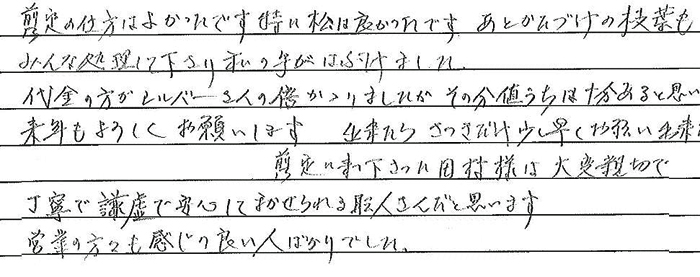 剪定の仕方はよかったです 特に松は良かったです あとかたづけの枝葉も
みんな処理して下さり 私の手がはぶけました。
代金の方がシルバーさんの倍かかりましたが その分値うちは十分あると思い
来年もよろしくお願いします 出来たら さつきだけ少し早くお願い出来
剪定に来て下さった田村様は大変親切で
丁寧で謙虚で安心してまかせられる職人さんだと思います
営業の方々も感じの良い人ばかりでした。